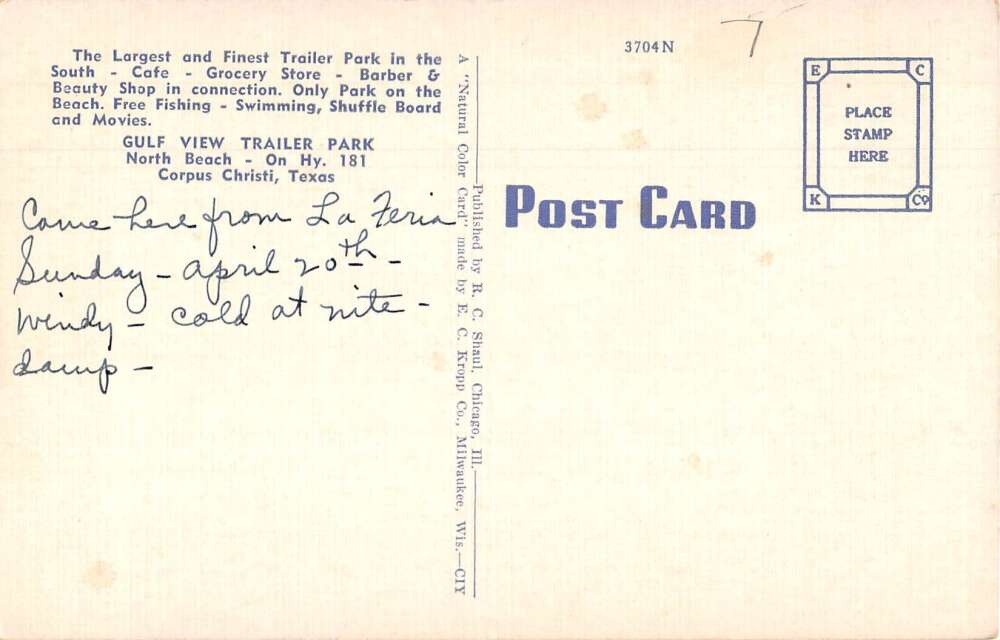 The Largest and Finest Trailer Park in the
South - Cafe - Grocery Store - Barber &
Beauty Shop in connection. Only Park on the
Beach. Free Fishing - Swimming, Shuffle Board
and Movies.
GULF VIEW TRAILER PARK
North Beach - On Hy. 181
Corpus Christi, Texas
Came here from La Feria
Sunday - April 20th -
Windy - cold at nite -
damp -
A "Natural Color Card" made by E. C. Kropp Co., Milwaukee, Wis.—CIY
Published by R. C. Shaul, Chicago, Ill.
POST CARD
3704N
7
E C
PLACE
STAMP
HERE
K Co